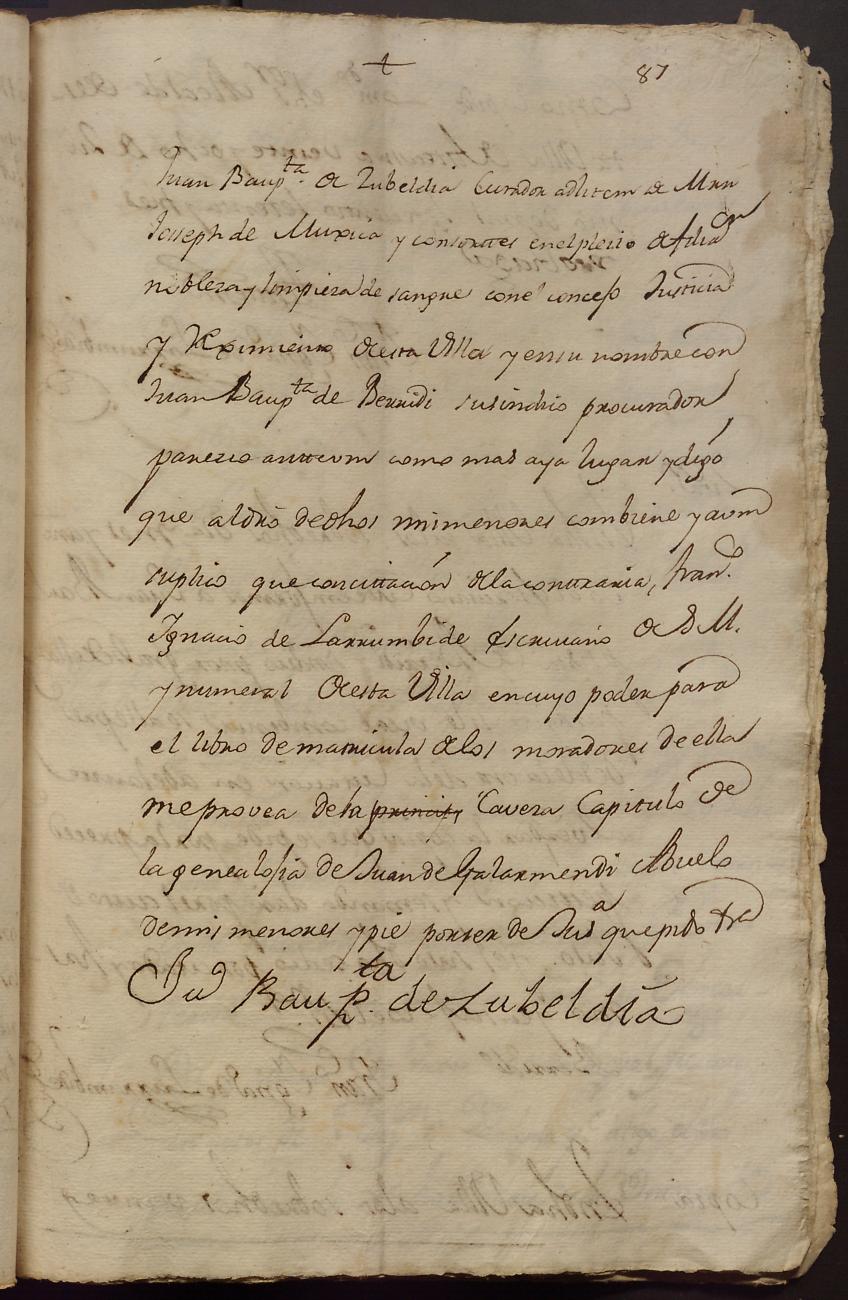 87
Juan Baup.ta de Zubeldia Curador adlitem de Mrn
Joseph de Muxica y consortes enelpleito de filia.on
nobleza y limpieza de sangre conel concejo Justicia
y Reximiento de esta Villa y ensu nombre con
Juan Baup.ta de Berridi susindico procurador
parezco antteum como mas aya lugar y digo
que al dro dedhos mimenores combiene y aum
suplico que concittación dela conttraria, fran.co
Ignacio de Larrumbide Escrivano de S M.
y numeral de esta Villa encuyo poder para
el libro de matricula delos moradores de ella
meprovea dela Cavera Capitulo de
la genealosia de Juan de Galarmendi Abuelo
demis menores y pie que pido
Ju Baup.ta de Zubeldia